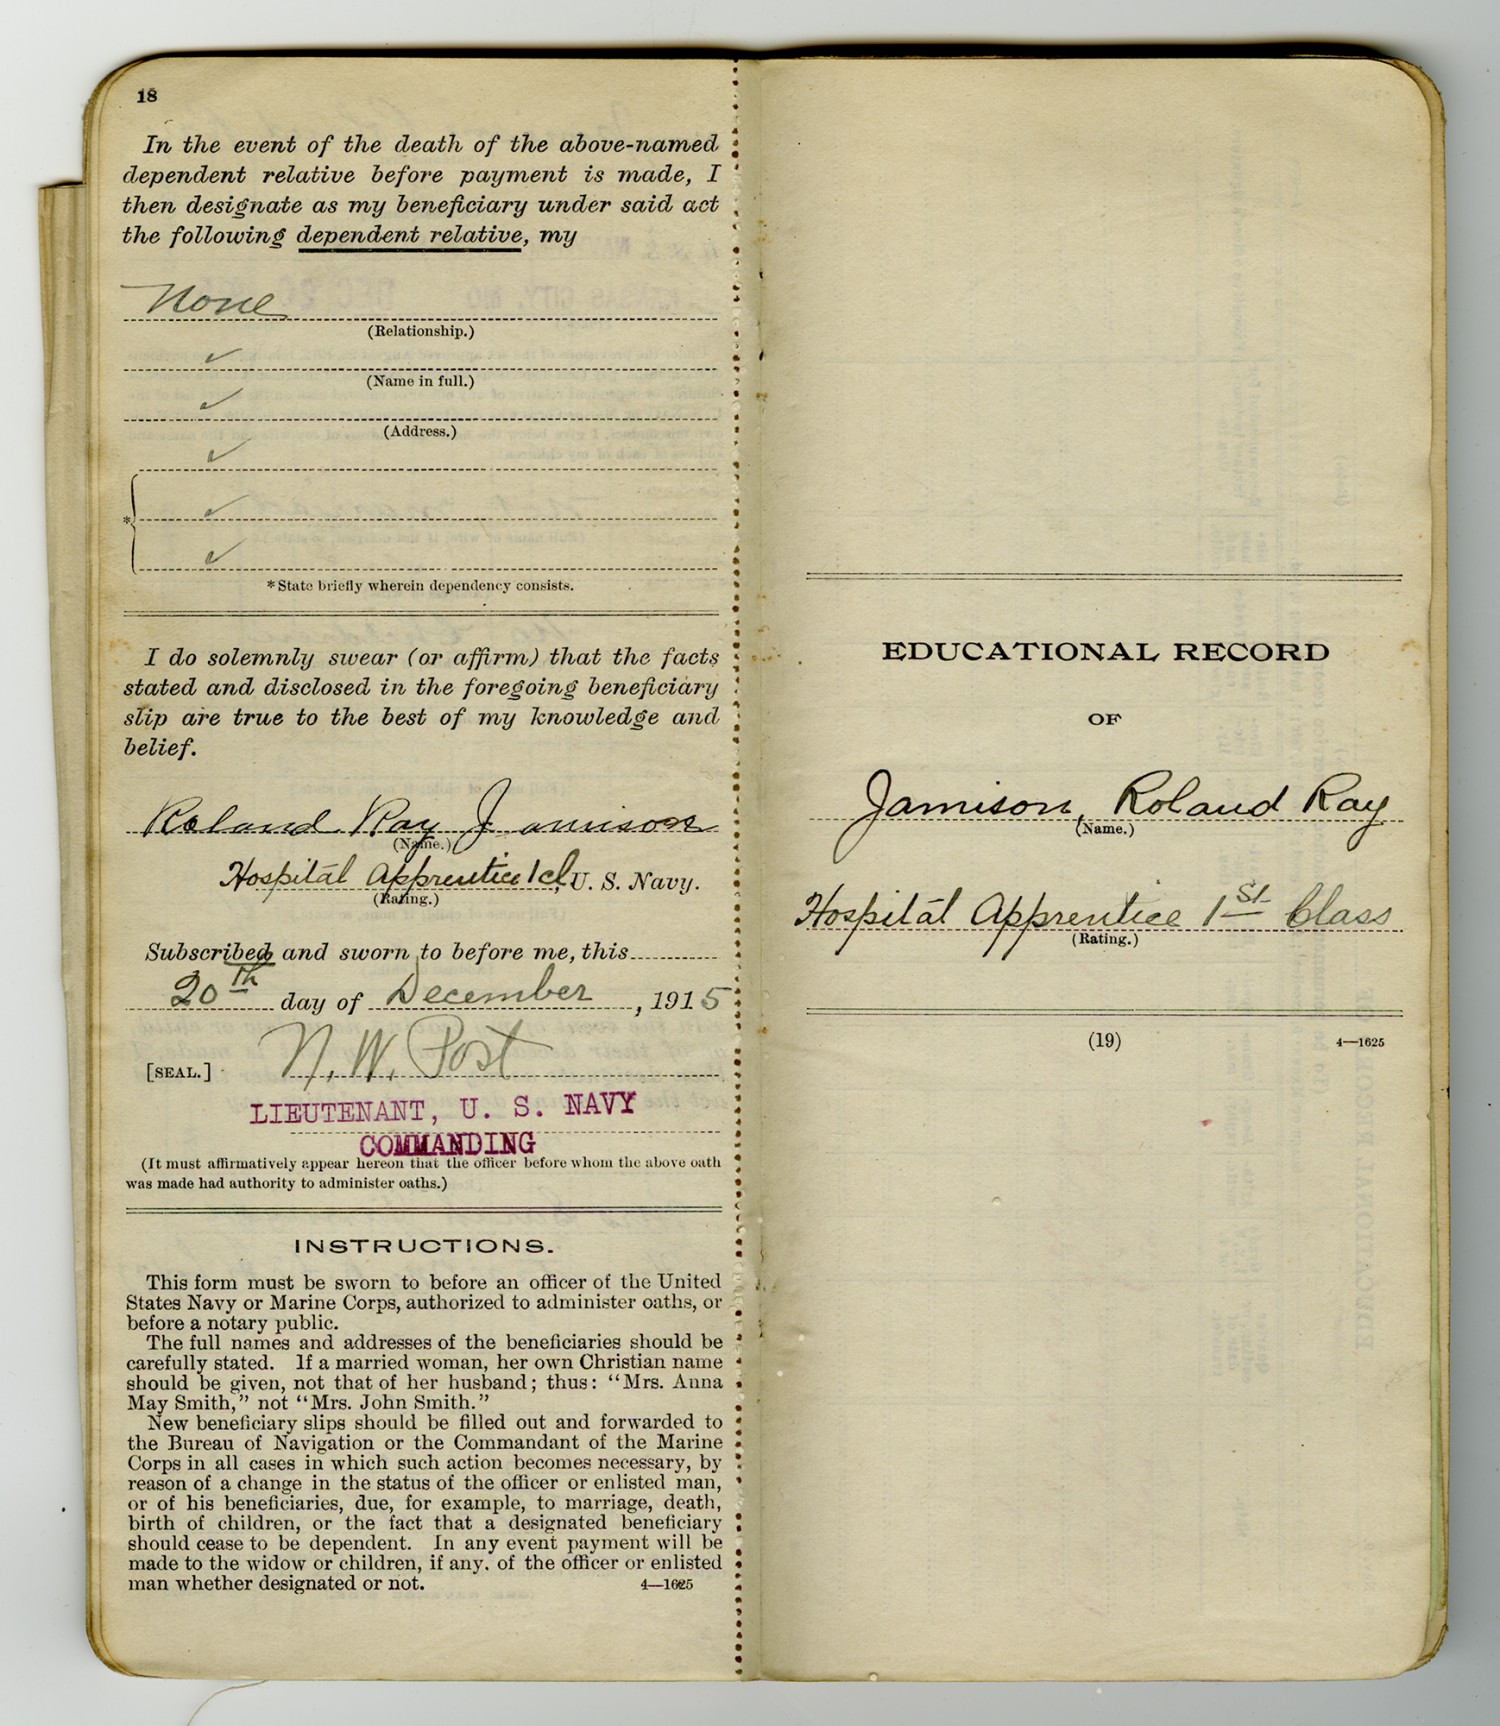 18
In the event of the death of the above-named
dependent relative before payment is made, I
then designate as my beneficiary under said act
the following dependent relative, my
None
(Relationship.)
✓
(Name in full.)
✓
(Address.)
✓
✓
*
✓
*State briefly wherein dependency consists.
I do solemnly swear (or affirm) that the facts
stated and disclosed in the foregoing beneficiary
slip are true to the best of my knowledge and
belief.
Roland Ray Jamison
(Name.)
Hospital Apprentice 1cl, U. S. Navy.
(Rating.)
Subscribed and sworn to before me, this
20th day of December, 1915
[SEAL.] N. W. Post
LIEUTENANT, U. S. NAVY
COMMANDING
(It must affirmatively appear hereon that the officer before whom the above oath
was made had authority to administer oaths.)
INSTRUCTIONS.
This form must be sworn to before an officer of the United
States Navy or Marine Corps, authorized to administer oaths, or
before a notary public.
The full names and addresses of the beneficiaries should be
carefully stated. If a married woman, her own Christian name
should be given, not that of her husband; thus: "Mrs. Anna
May Smith," not "Mrs. John Smith."
New beneficiary slips should be filled out and forwarded to
the Bureau of Navigation or the Commandant of the Marine
Corps in all cases in which such action becomes necessary, by
reason of a change in the status of the officer or enlisted man,
or of his beneficiaries, due, for example, to marriage, death,
birth of children, or the fact that a designated beneficiary
should cease to be dependent. In any event payment will be
made to the widow or children, if any, of the officer or enlisted
man whether designated or not.
4—1625
EDUCATIONAL RECORD
OF
Jamison, Roland Ray
(Name.)
Hospital Apprentice 1st Class
(Rating.)
(19)
4—1625